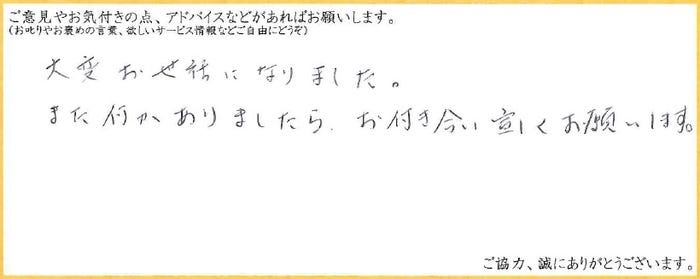 ご意見やお気付きの点、アドバイスなどがあればお願いします。
(お叱りやお褒めの言葉、欲しいサービス情報などご自由にどうぞ)
大変お世話になりました。
また何かありましたら、お付き合い宜しくお願いします。
ご協力、誠にありがとうございます。